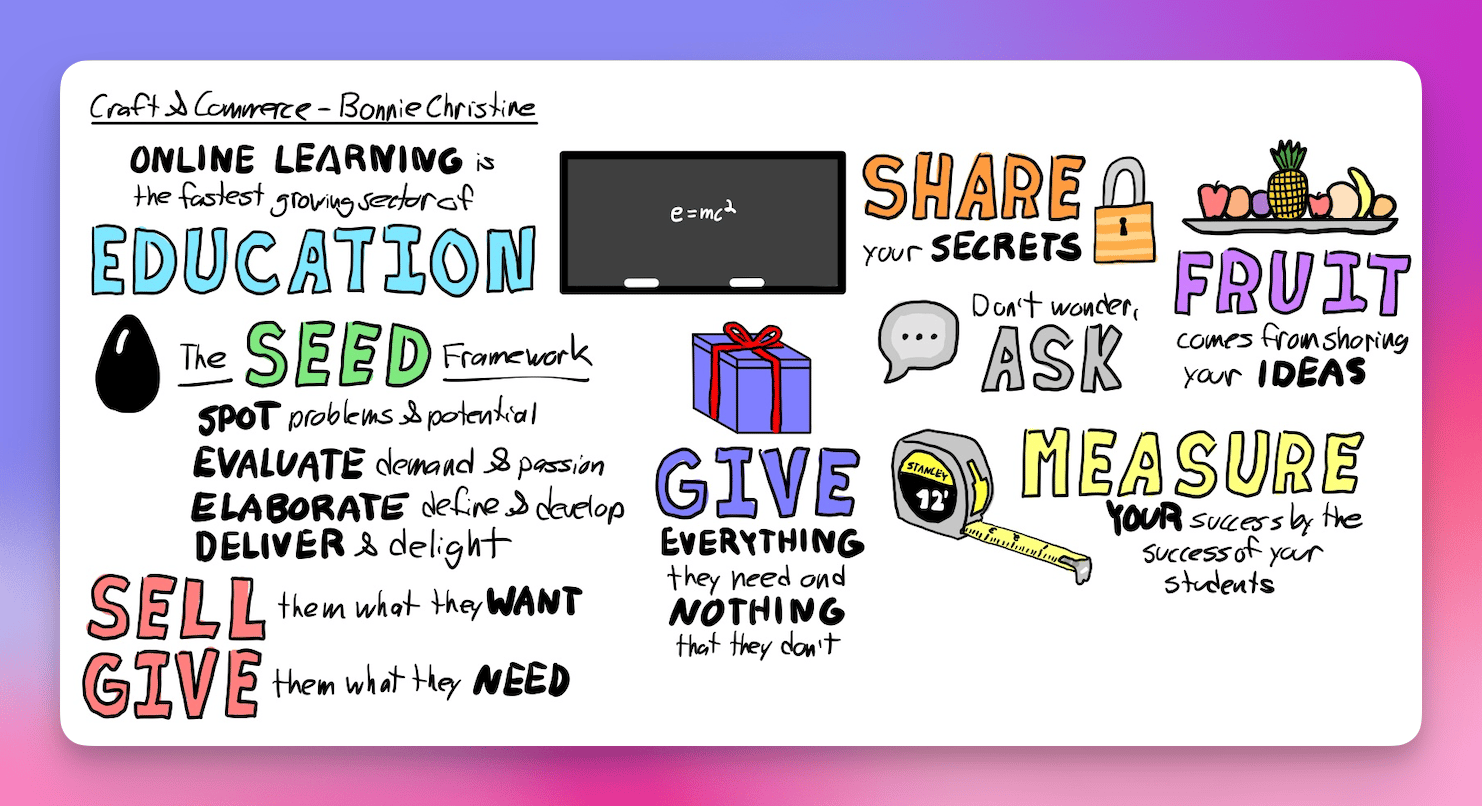 Craft & Commerce - Bonnie Christine
ONLINE LEARNING is
the fastest growing sector of
EDUCATION
The SEED Framework
SPOT problems & potential
EVALUATE demand & passion
ELABORATE define & develop
DELIVER & delight
SELL them what they WANT
GIVE them what they NEED
e=mc²
GIVE
EVERYTHING
they need and
NOTHING
that they don't
SHARE
your SECRETS
Don't wonder,
ASK
FRUIT
comes from sharing
your IDEAS
STANLEY
12'
MEASURE
YOUR success by the
success of your
students